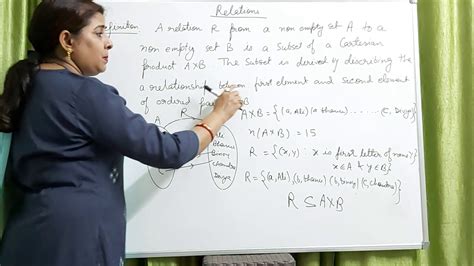 Relations
Definition A relation R from a non empty set A to a
non empty set B is a Subset of a Cartesian
product A×B. The Subset is derived by describing the
a relationship between first element and second element
of ordered
R B
A A×B = {(a, Ali) (a bhanu) ........ (C, Divya)}
n(A×B) = 15
Ali
bhanu
binoy
chandra
Divya
R = {(x,y) : x is first letter of name y
x∈A & y∈B}
R = {(a, Ali), (b, bhanu) (b, binoy) (C, chandra)}
R ⊆ A×B